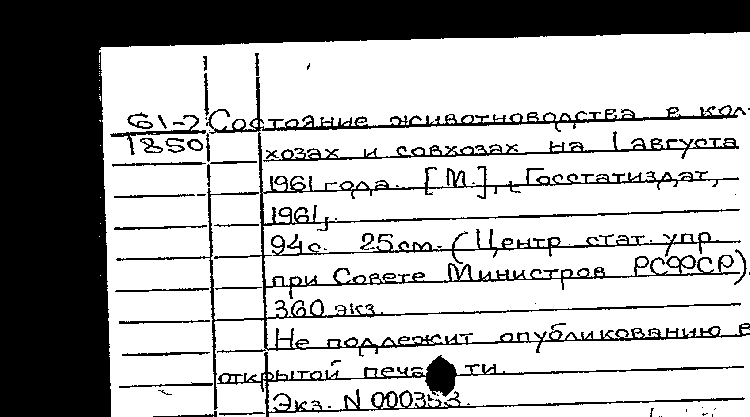 61-7 Состояние животноводства в кол-
1850 хозах и совхозах на 1 августа
1961 года. [М.], Госстатиздат,
1961,
94с. 25см. (Центр. стат. упр.
при Совете Министров РСФСР).
360 экз.
Не подлежит опубликованию в
открытой печати.
Экз. N 000353.